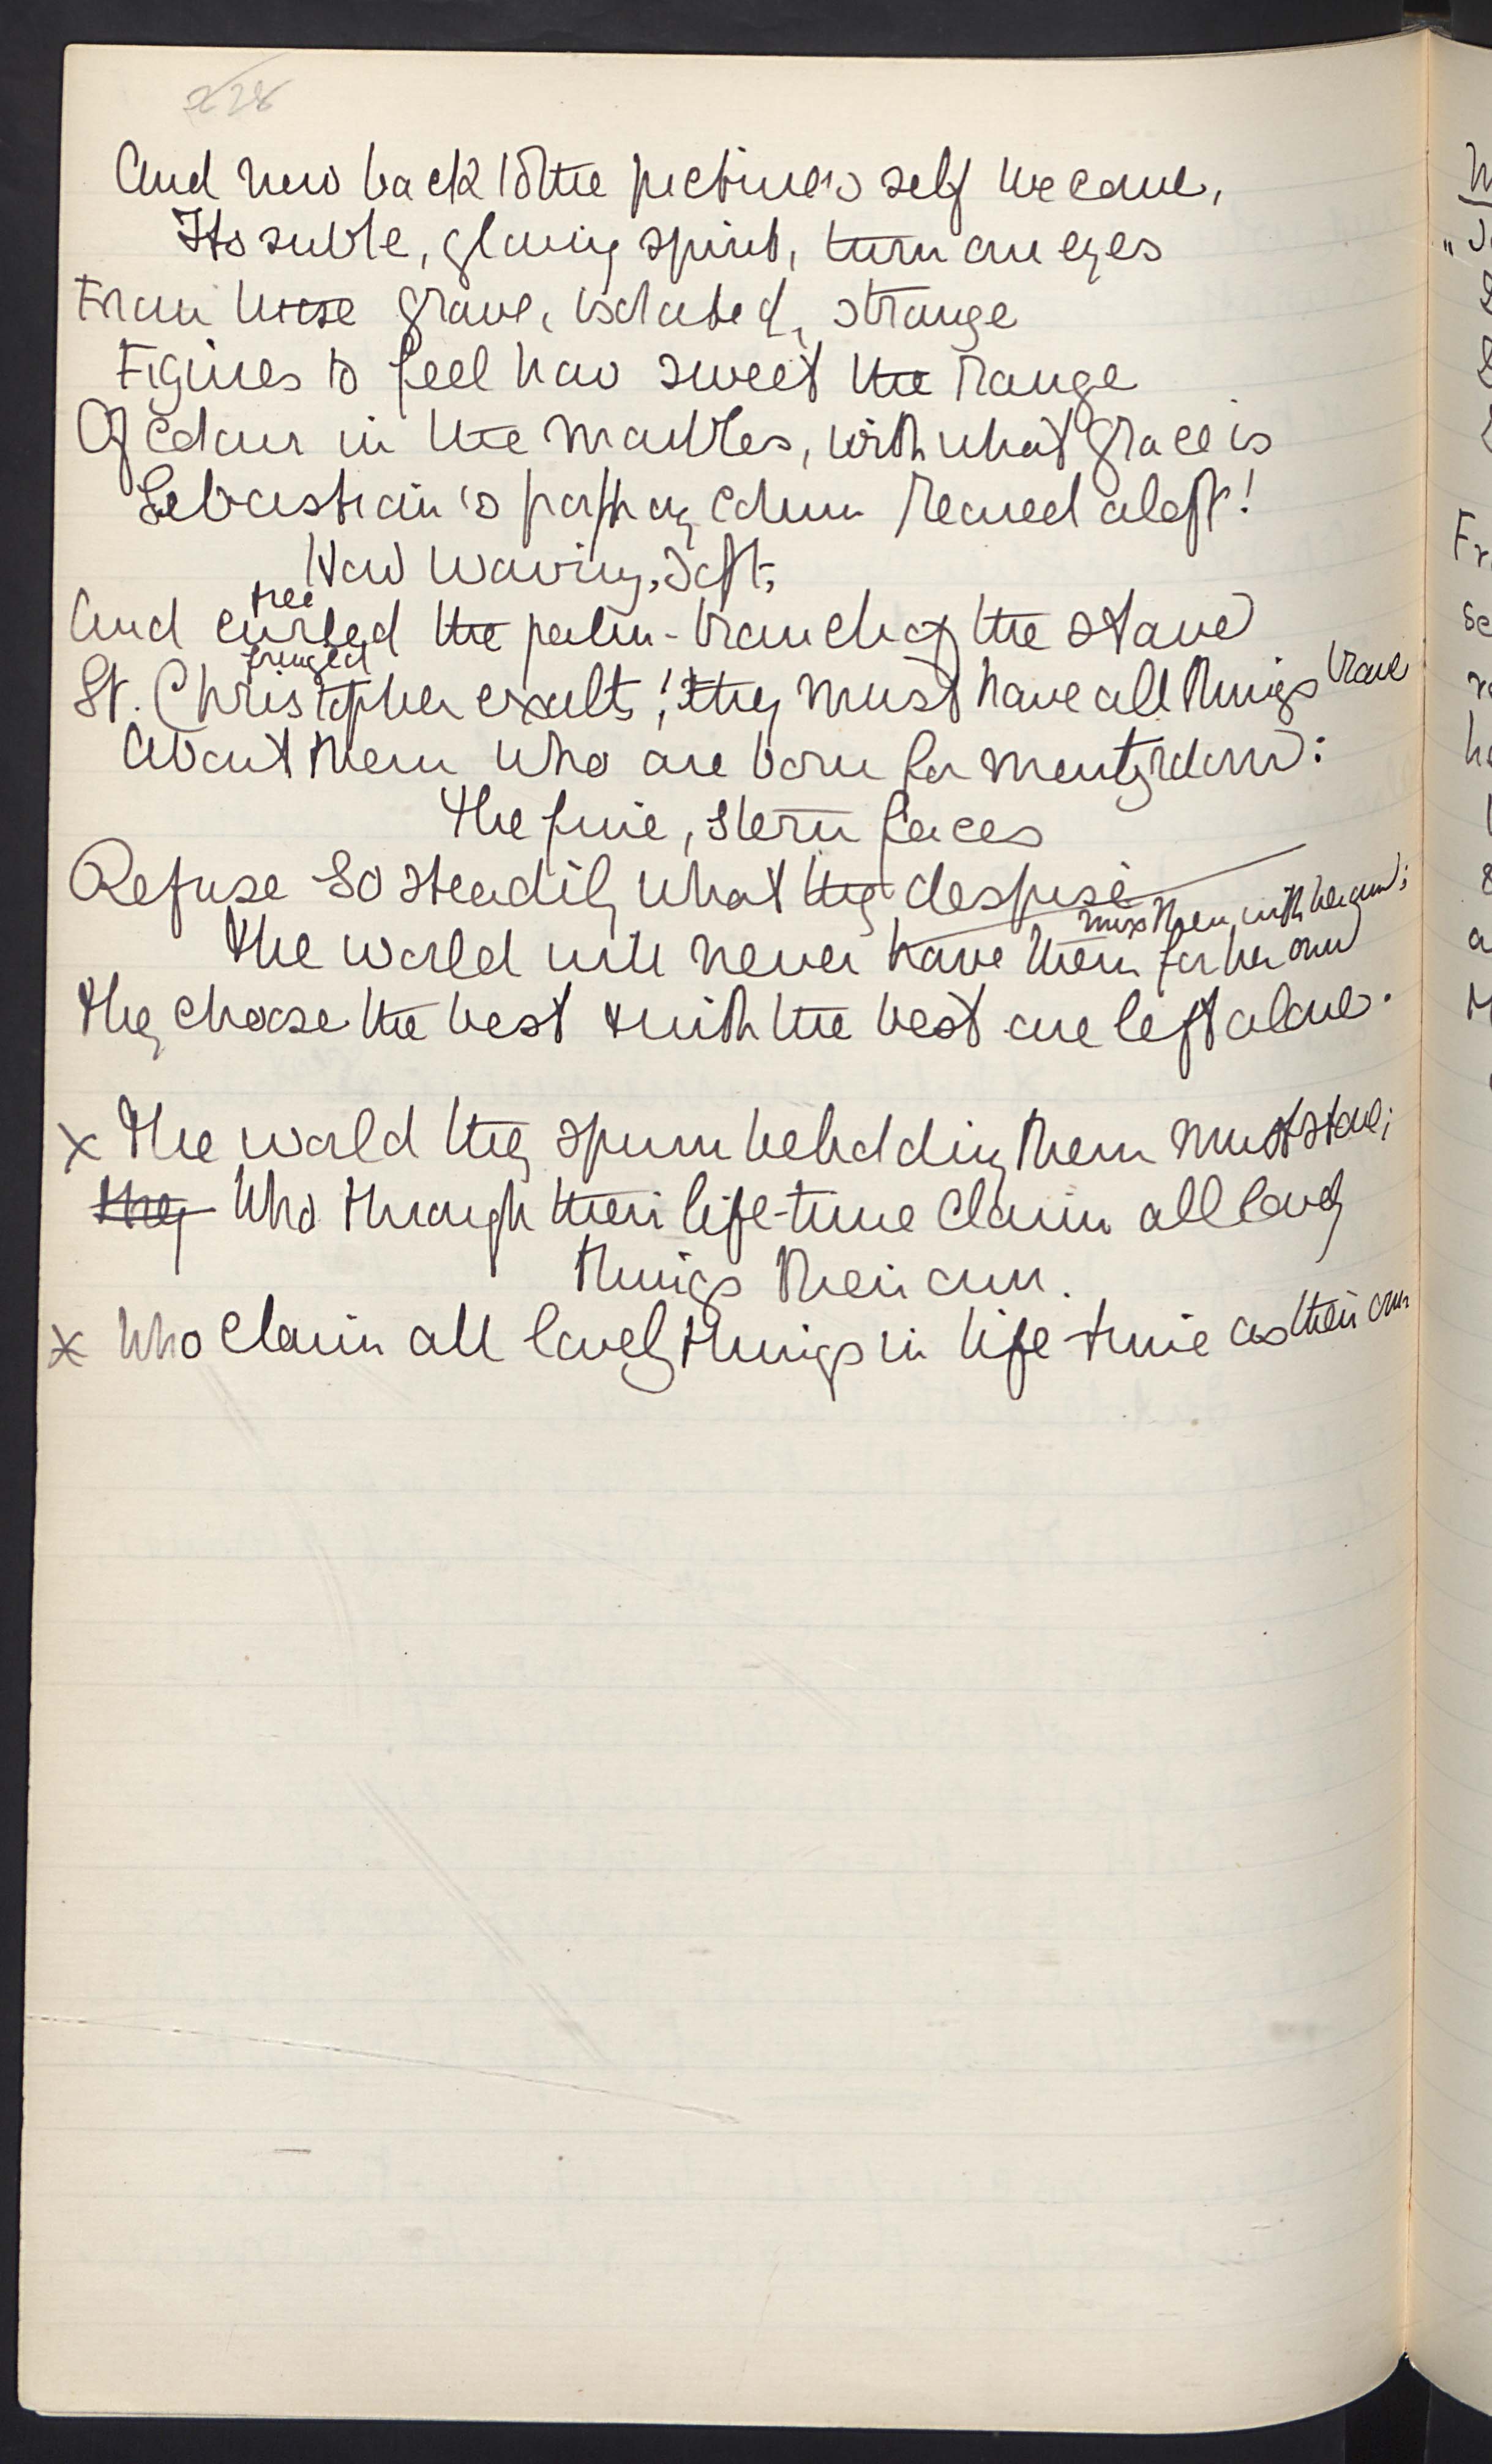 228
And now back to the picture's self we come,
Its subtle, glowing spirit, turn our eyes
From those grave, isolated, strange
Figures to feel how sweet the range
Of colour in the marbles, with what grace is
Sebastian's porphyry column reared aloft!
How waving, soft,
tree
And curled the palm-branch of the stave
fringed
St. Christopher exalts! they must have all things brave
About them who are born for martyrdom:
The fine, stern faces
Refuse so steadily what they despise
mix them with her own;
The world will never have them for her own
They choose the best & with the best are left alone.
x The world they spurn beholding them must stone;
they Who through their life-time claim all lovely
things their own.
x Who claim all lovely things in life-time as their own